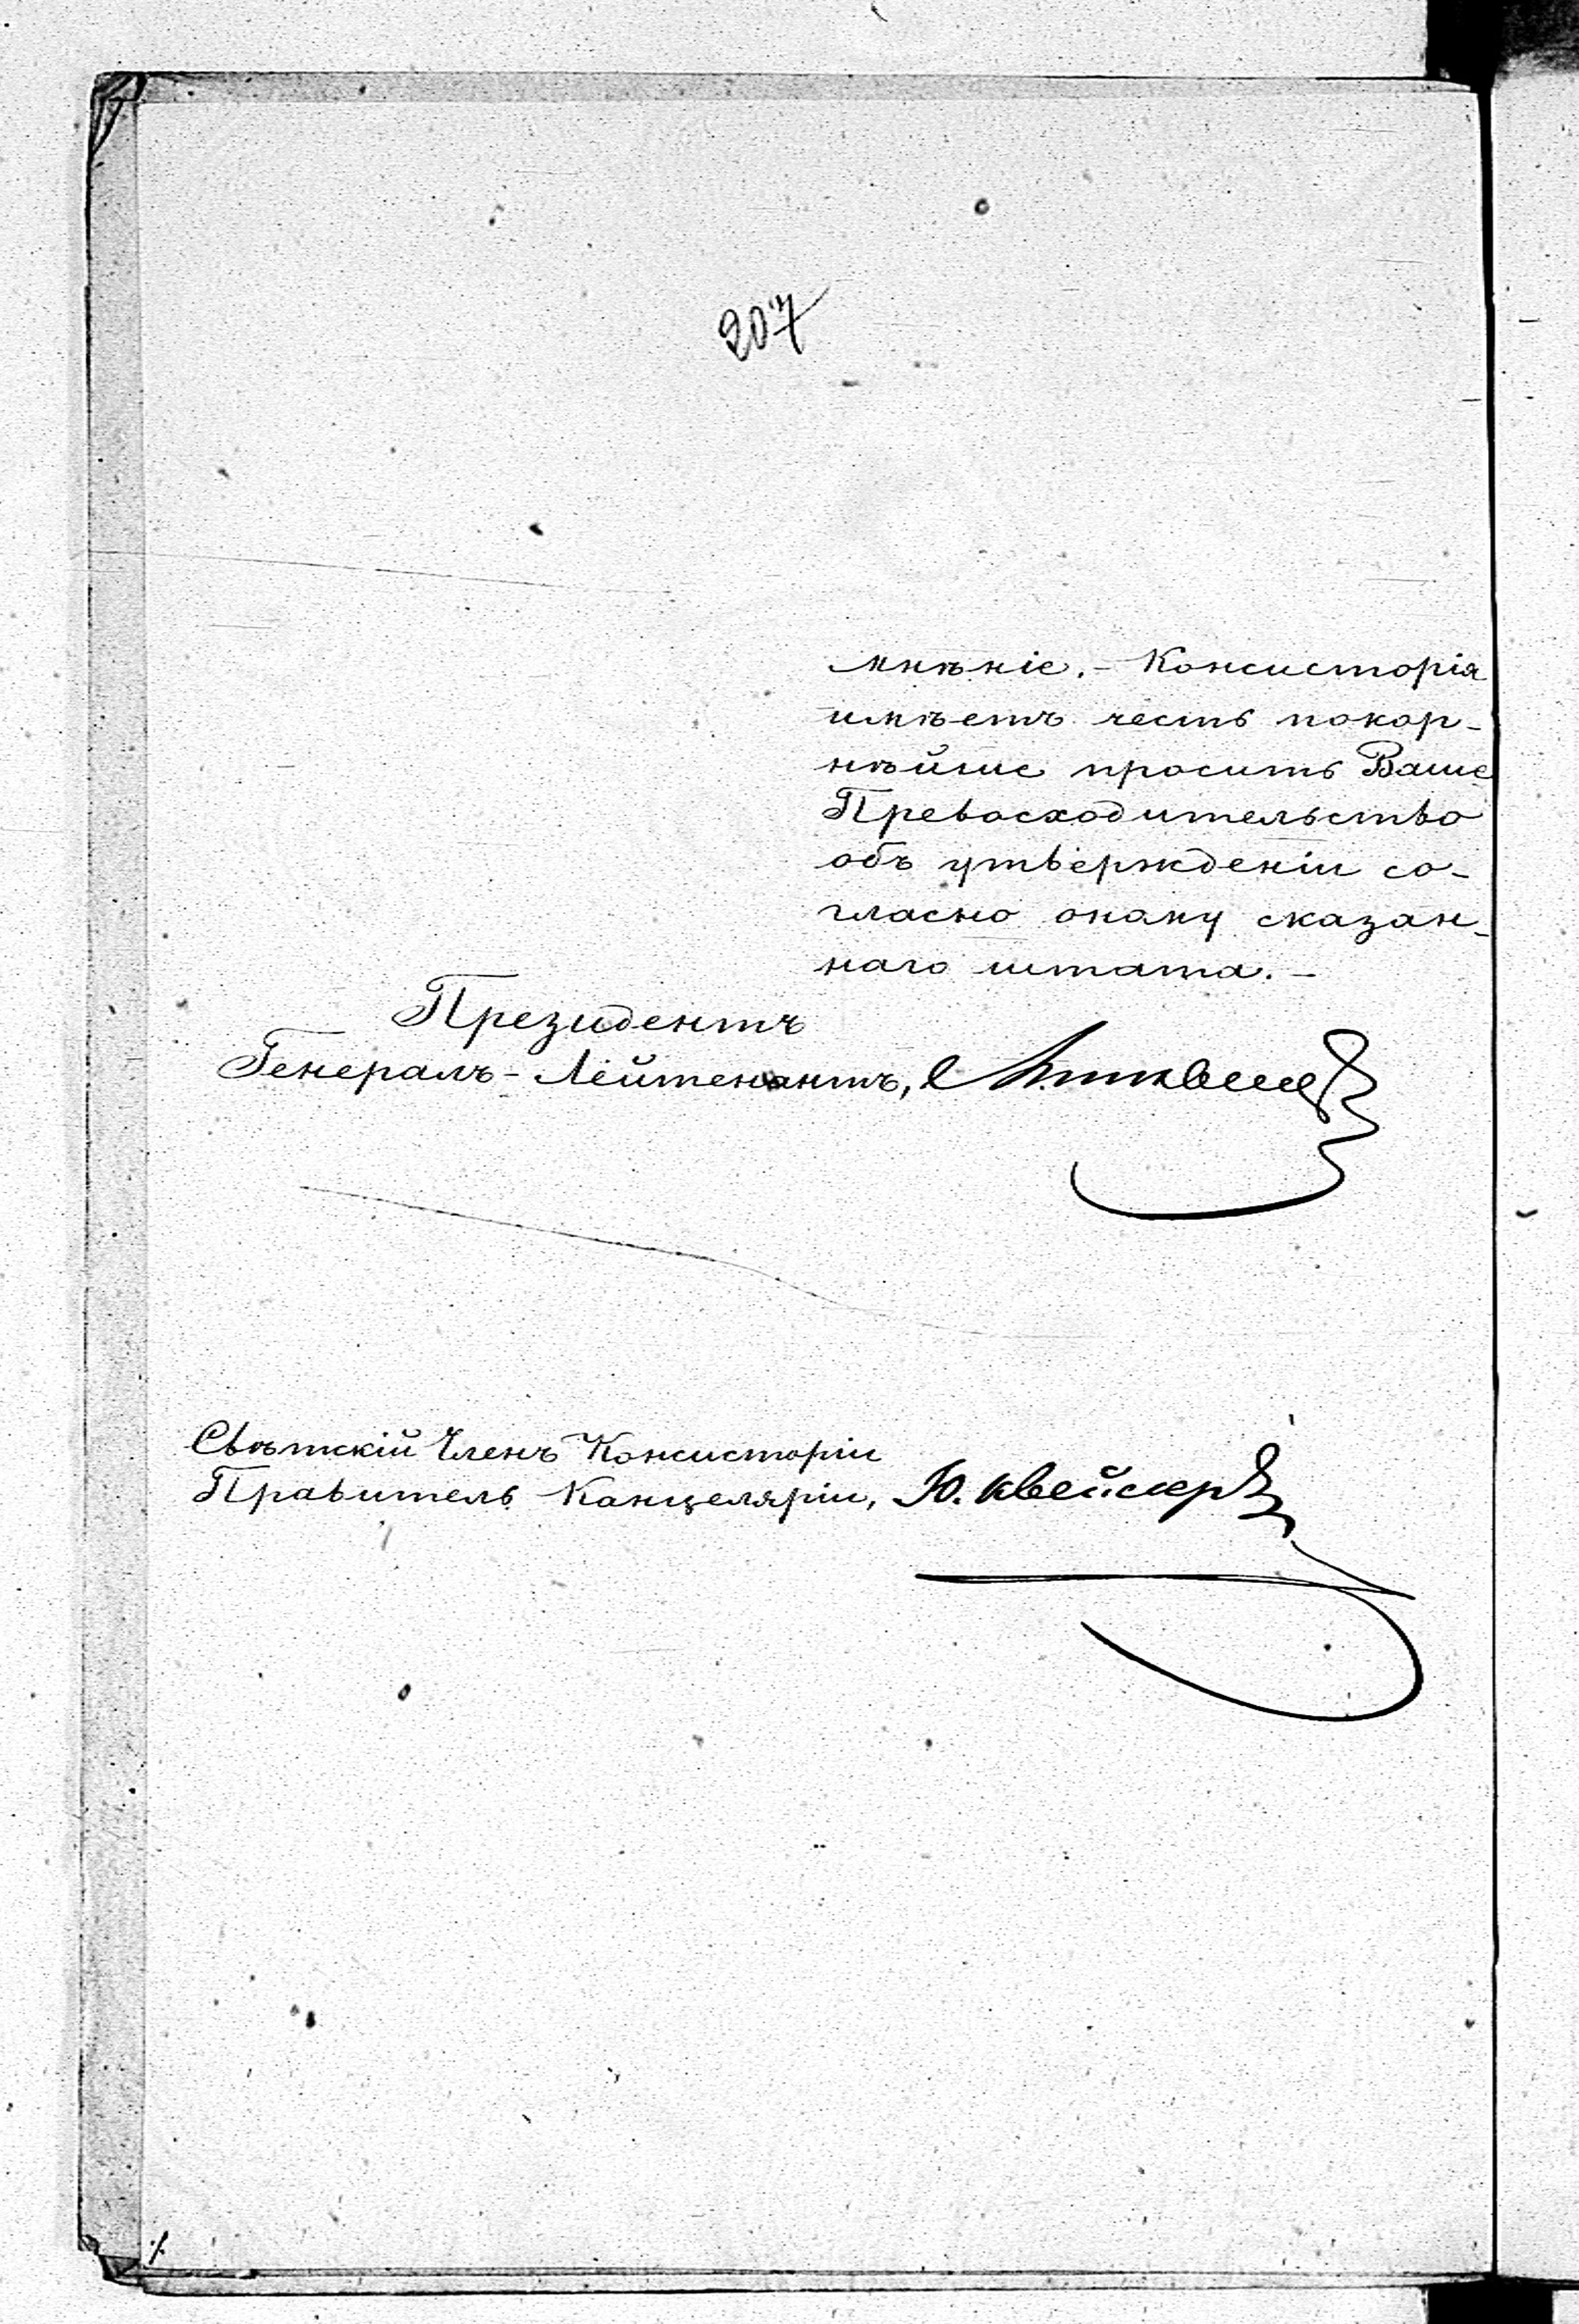 207
мнѣніе. - Консисторія
имѣетъ честь покор-
нѣйше просить Ваше
Превосходительство
объ утвержденіи со-
гласно оному сказан-
наго штата. -
Президентъ
Генералъ-Лейтенантъ,
Свѣтскій Членъ Консисторіи
Правитель Канцеляріи, Ю.